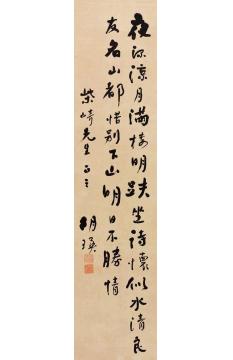 夜深凉月满楼明趺坐诗怀似水清良
友名山都惜别下山明日不胜情
柴崎先生正之
胡瑛